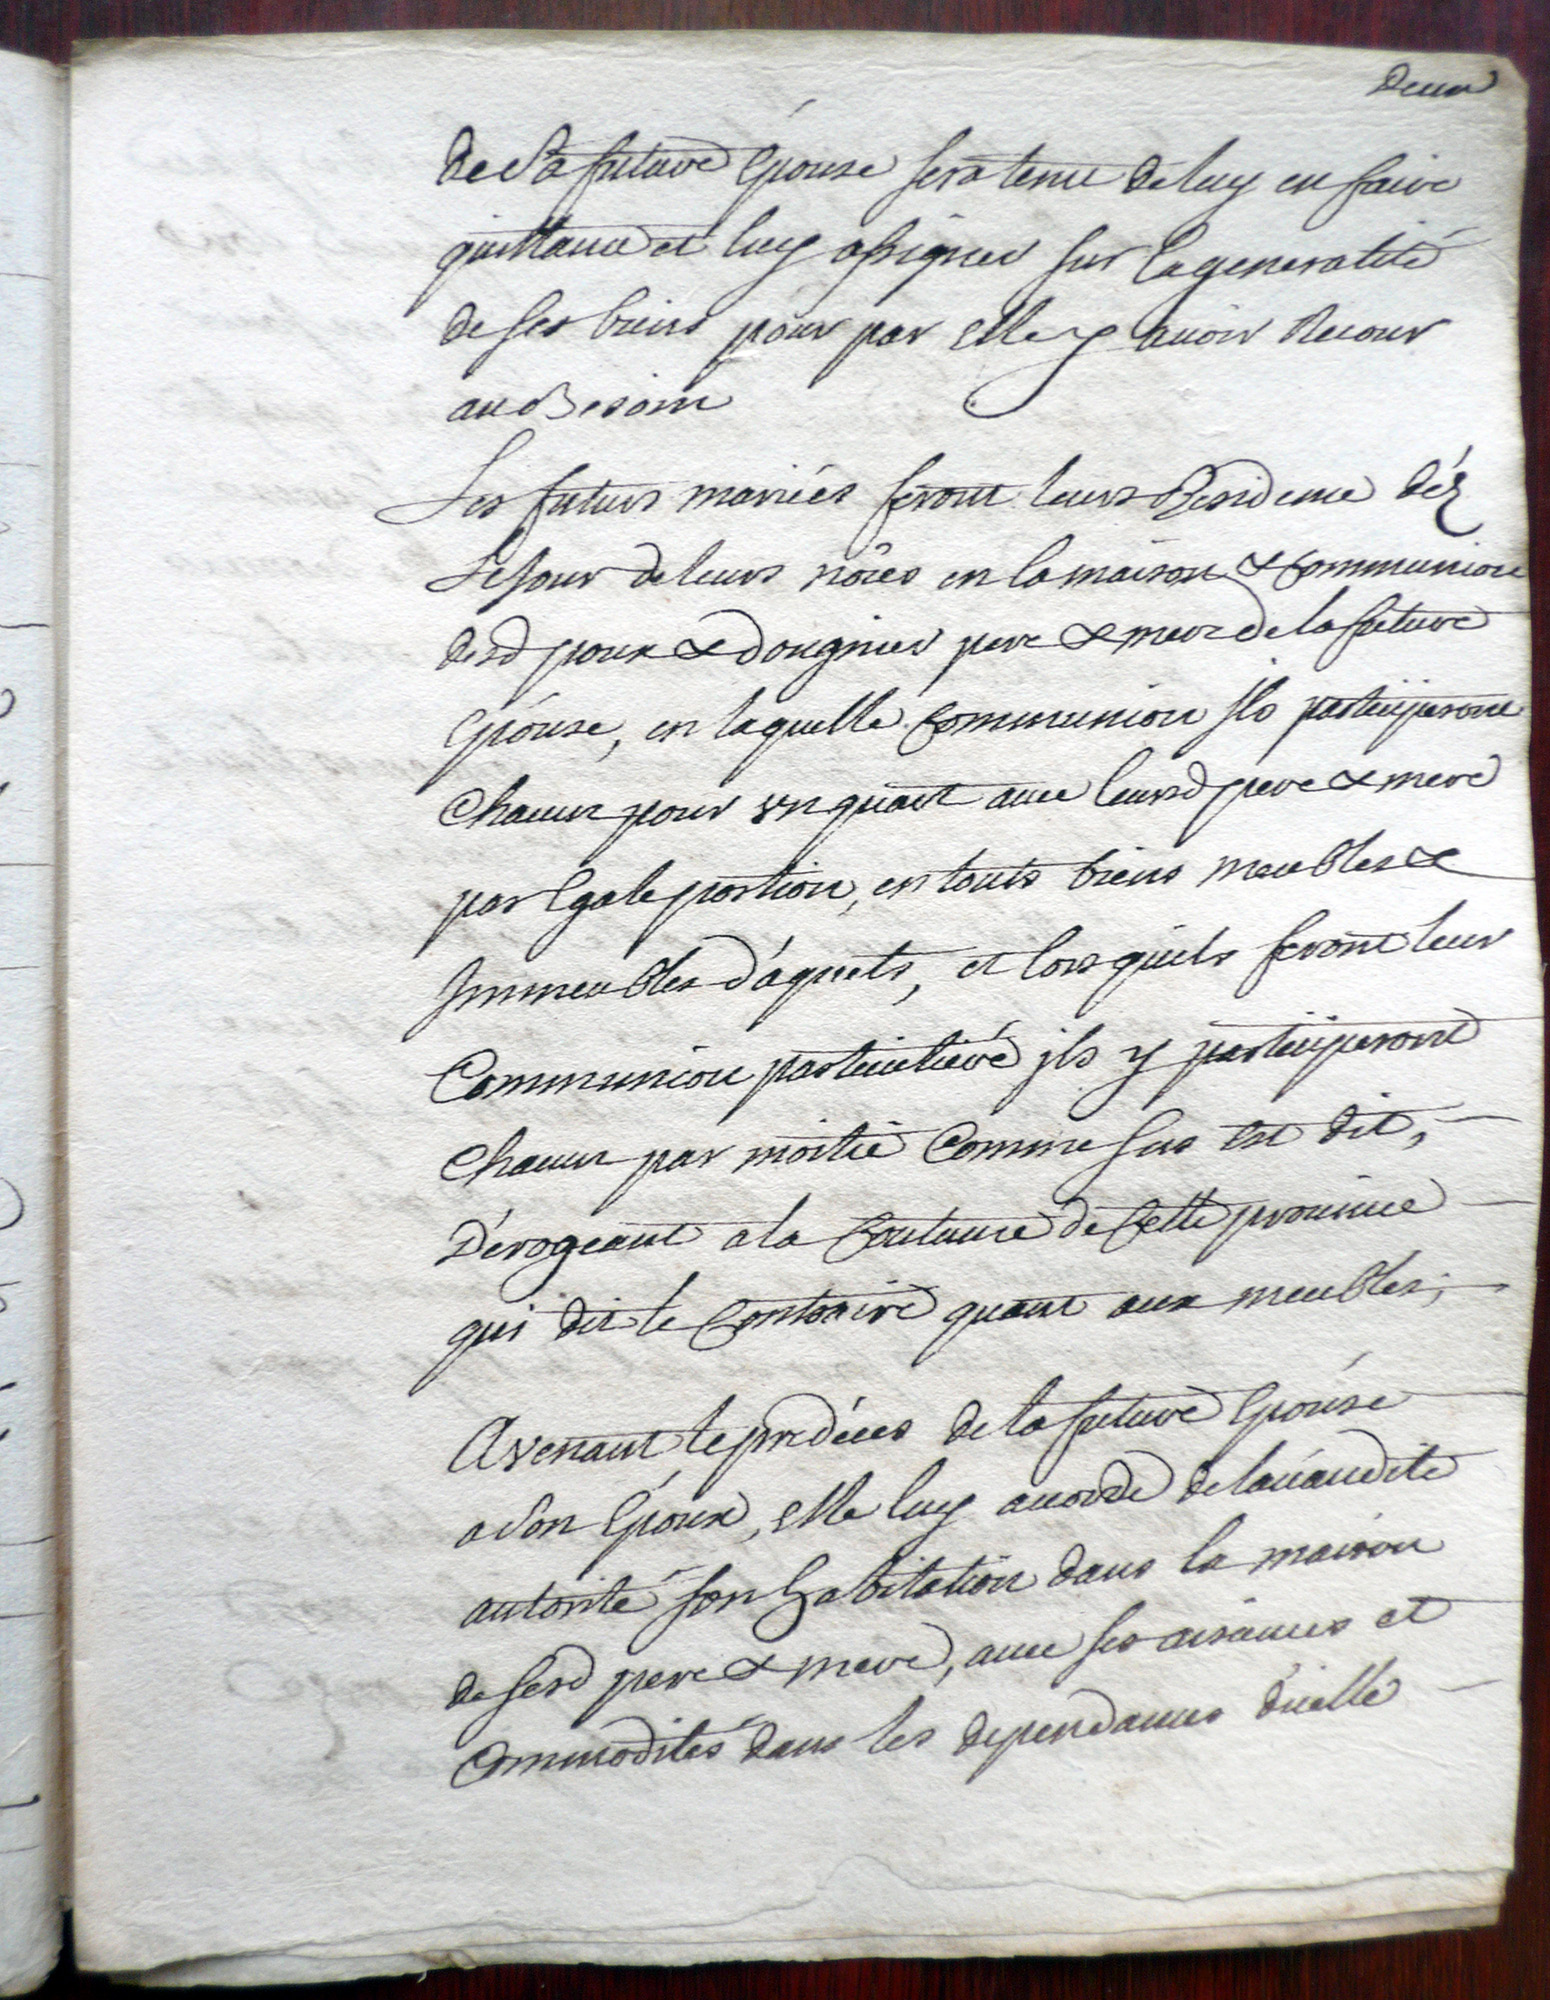 Deux
de Sa future Epouse sera tenu de luy en faire
quittance et luy assigner sur la generalité
de ses biens pour par elle y avoir Recour
au Besoin
Les futurs mariées feront leurs Residence déz
Le jour de leurs nôces en la maison & communion
desd poux & dougnier pere & mere de la future
Epouse, en laquelle Communion jls participeront
Chacun pour un quart avec leursd pere & mere
par Egale portion, en touts biens meubles &
Jmmeubles d'aquets, et lorsquils feront leur
Communion particulieré jls y participeront
Chacun par moitié Comme sus est dit,
Dérogeant a la Coutume de Cette province
qui dit le Contraire quant aux meubles;
Avenant le prédéces de la future Epouse
a Son Epoux, elle luy accorde de lavandite
autorité son habitation dans la maison
de sesd pere & mere, avec ses aisances et
Commodités dans les dependances d'icelle